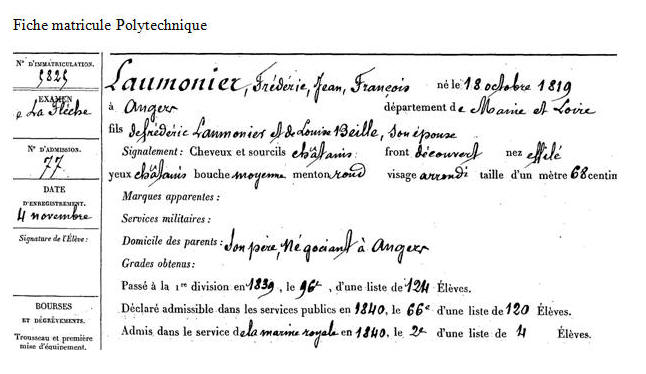 Fiche matricule Polytechnique
N° D'IMMATRICULATION.
5825
EXAMEN
de La Flèche
N° D'ADMISSION.
77
DATE
D'ENREGISTREMENT.
4 novembre
Signature de l'Élève :
BOURSES
ET DÉGRÈVEMENTS.
Trousseau et première
mise d'équipement.
Laumonier, Frédéric, Jean, François né le 18 octobre 1819
à Angers département de Maine et Loire
fils de frédéric Laumonier et de Louise Beille, son épouse
Signalement : Cheveux et sourcils châtains front découvert nez effilé
yeux châtains bouche moyenne menton rond visage arrondi taille d'un mètre 68 centim
Marques apparentes :
Services militaires :
Domicile des parents : Son père, Négociant à Angers
Grades obtenus :
Passé à la 1re division en 1839, le 96e, d'une liste de 124 Élèves.
Déclaré admissible dans les services publics en 1840, le 66e d'une liste de 120 Élèves.
Admis dans le service de la marine royale en 1840, le 2e d'une liste de 4 Élèves.